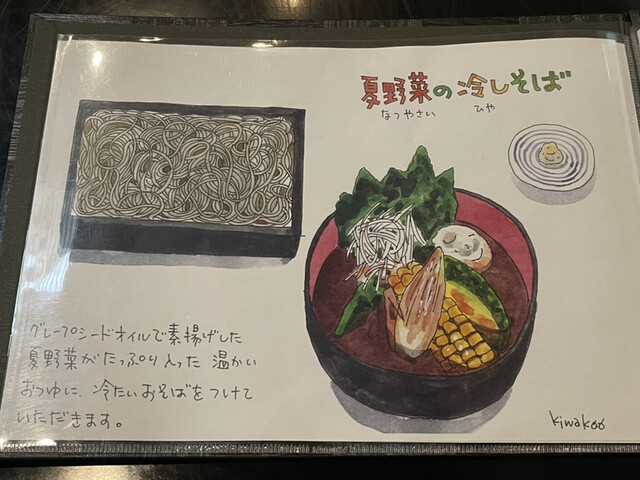 夏野菜の冷しそば
なつやさい ひや
グレープシードオイルで素揚げした
夏野菜がたっぷり入った 温かい
おつゆに、冷たいおそばをつけて
いただきます。
kiwakoo